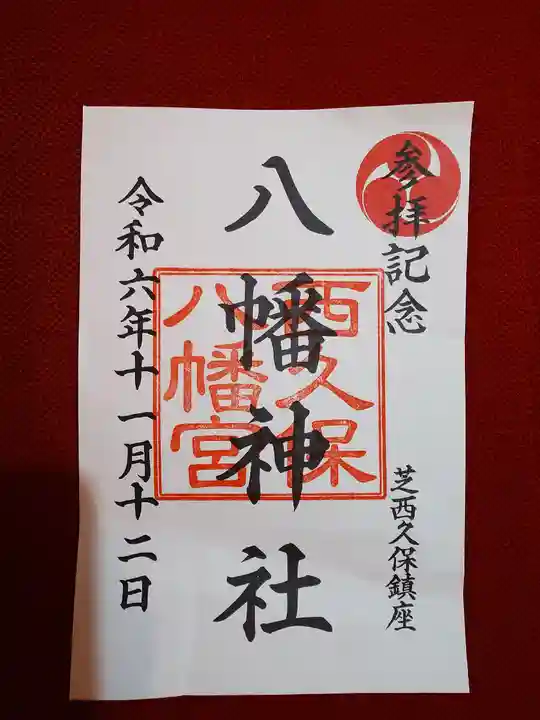 参拝記念
芝西久保鎮座
八幡神社
西久保
八幡宮
令和六年十一月十二日